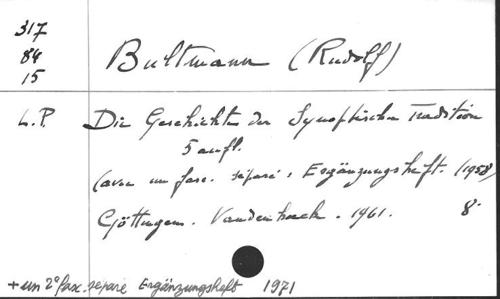 317
84
15
Bultmann (Rudolf)
L.P. Die Geschichte der Synoptischen Tradition
5 aufl.
(avec un fasc. séparé : Ergänzungsheft. (1958)
Göttingen. Vandenhoeck. 1961. 8°
+ un 2° fasc. séparé Ergänzungsheft 1971